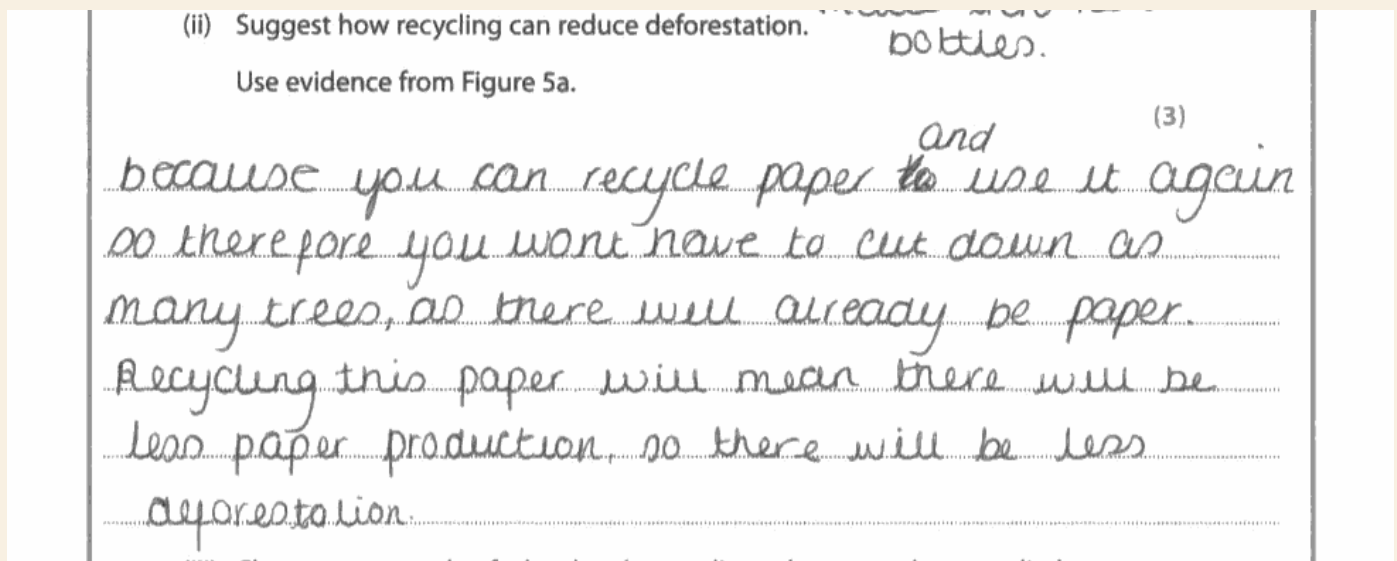 (ii) Suggest how recycling can reduce deforestation.
bottles.
Use evidence from Figure 5a.
(3)
and
because you can recycle paper to use it again
so therefore you wont have to cut down as
many trees, as there will already be paper.
Recycling this paper will mean there will be
less paper production, so there will be less
deforestation.